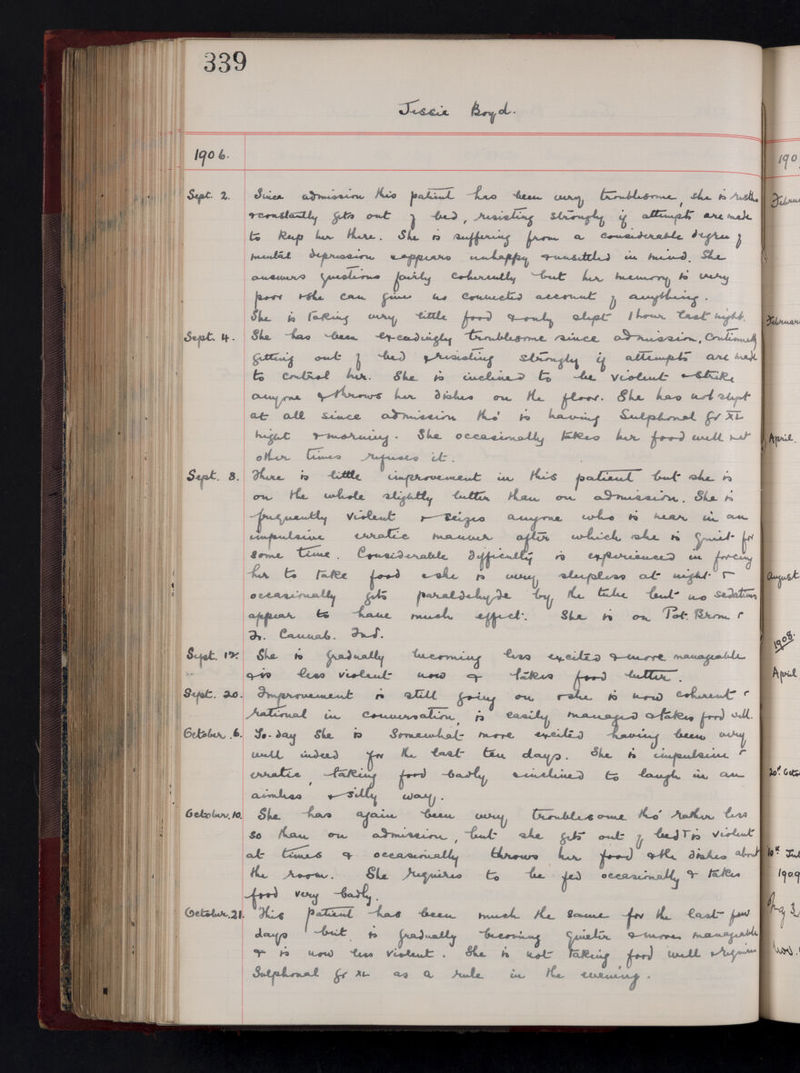 339
Jessie Boyd.
1906.
Sept. 2. Since admission this patient has been very troublesome, she is restless
& constantly gets out of bed, resisting strongly if attempts are made
to keep her there. She is suffering from a considerable degree of
mental depression & appears unhappy & unsettled in mind. She
answers questions fairly coherently but her memory is very
poor & she can give no connected account of anything.
She is taking very little food & only slept 1 hour last night.
Sept. 4. She has been exceedingly troublesome since admission, continually
getting out of bed & resisting strongly if attempts are made
to control her. She is inclined to be violent & strike
anyone & throws her dishes on the floor. She has not slept
at all since admission tho' is having Sulphonal gr XL
night & morning. She occasionally takes her food well but
other times refuses it.
Sept. 8. There is little improvement in this patient but she is
on the whole slightly better than on admission. She is
frequently violent & seizes anyone who is near in an
impulsive erratic manner after which she is quiet for
some time. Considerable difficulty is experienced in forcing
her to take food & she is very sleepless at night &
occasionally gets paraldehyde by the tube but no sedatives
appear to have much effect. She is on Pot. Brom &
Tr. Cannab. Ind.
Sept. 12. She is gradually becoming less excited & more manageable
& is less violent now & takes food better.
Sept. 20. Improvement is still going on & she is now coherent &
rational in conversation, is easily managed & takes food well.
October. 6. To-day she is somewhat more excited having been very
well indeed for the last ten days. She is impulsive &
erratic, taking food badly & inclined to laugh in an
aimless & silly way.
October. 10. She has again been very troublesome tho' rather less
so than on admission, but she gets out of bed & is violent
at times & occasionally throws her food & the dishes about
the room. She requires to be fed occasionally & takes
food very badly.
October. 21. This patient has been much the same for the last few
days but is gradually becoming quieter & more manageable
& is now less violent. She is not taking food well & requires
Sulphonal gr XL as a rule in the evening.
190
Februar
April.
August
1908.
April
1909